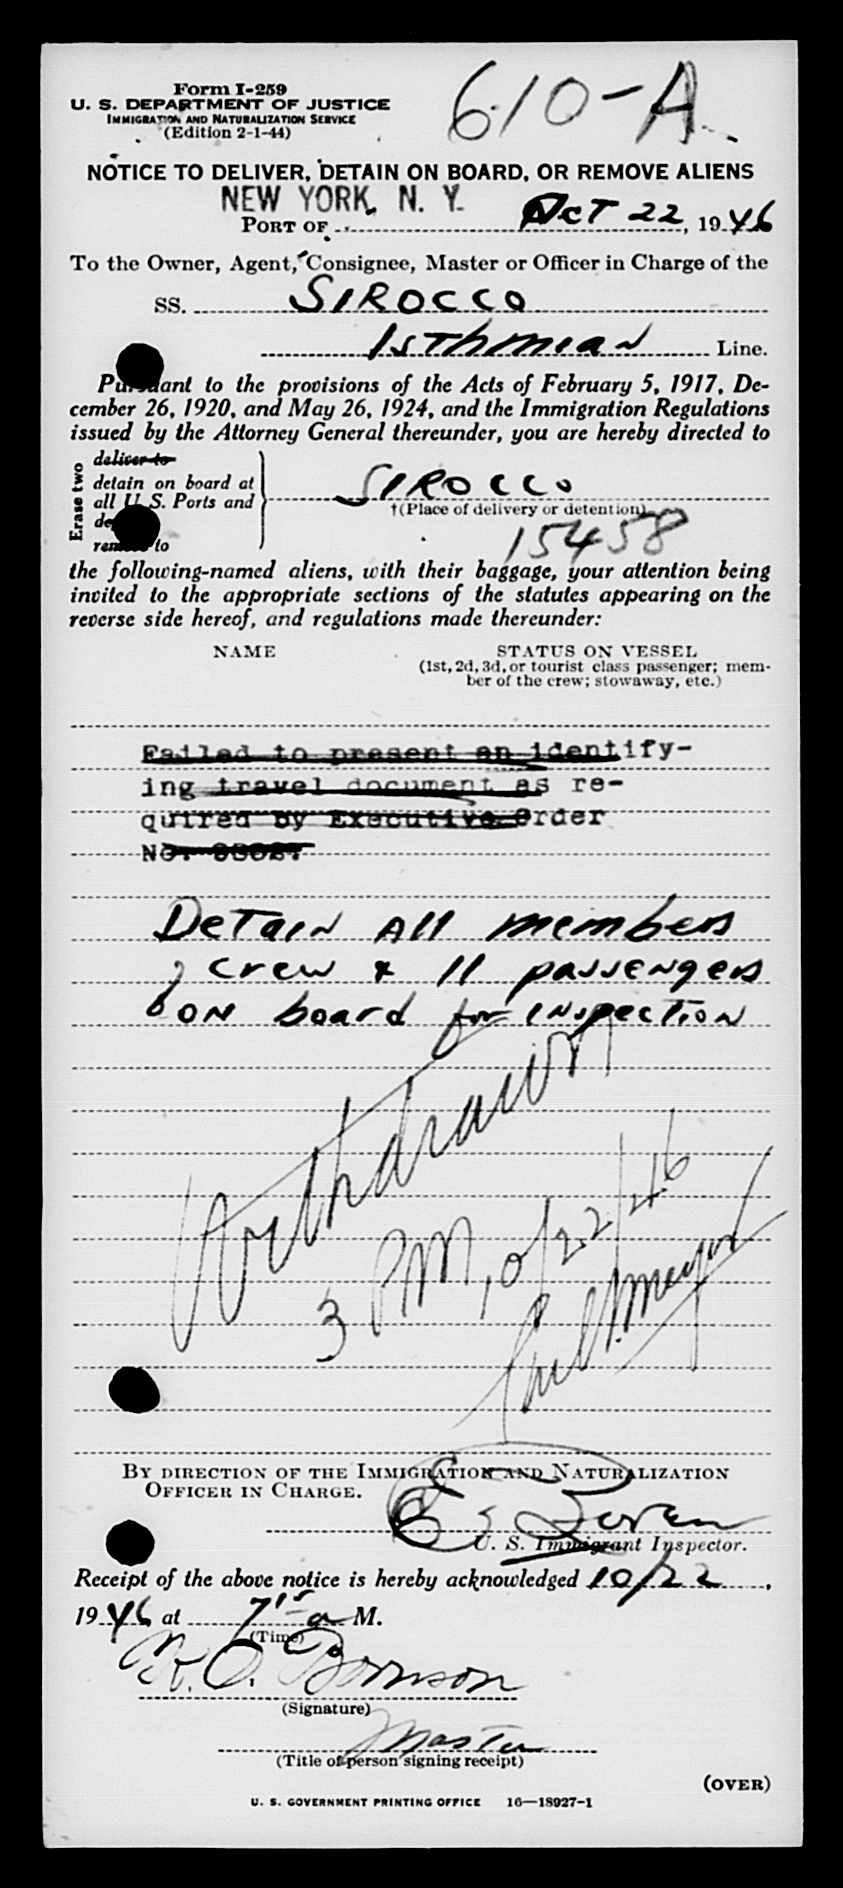 Form I-259
U. S. DEPARTMENT OF JUSTICE
IMMIGRATION AND NATURALIZATION SERVICE
(Edition 2-1-44)
610-A
NOTICE TO DELIVER, DETAIN ON BOARD, OR REMOVE ALIENS
NEW YORK, N. Y.
PORT OF Oct 22, 1946
To the Owner, Agent, Consignee, Master or Officer in Charge of the
SS. SIROCCO
Isthmian Line.
Pursuant to the provisions of the Acts of February 5, 1917, De-
cember 26, 1920, and May 26, 1924, and the Immigration Regulations
issued by the Attorney General thereunder, you are hereby directed to
Erase two
deliver to
detain on board at
all U. S. Ports and
remove to
SIROCCO
†(Place of delivery or detention)
15458
the following-named aliens, with their baggage, your attention being
invited to the appropriate sections of the statutes appearing on the
reverse side hereof, and regulations made thereunder:
NAME
STATUS ON VESSEL
(1st, 2d, 3d, or tourist class passenger; mem-
ber of the crew; stowaway, etc.)
Failed to present an identify-
ing travel document as re-
quired by Executive Order
NO.
Detain All members
of crew & 11 passengers
on board for inspection
Withdrawn
3 PM, 10/22/46
Meyer
BY DIRECTION OF THE IMMIGRATION AND NATURALIZATION
OFFICER IN CHARGE.
U. S. Immigrant Inspector.
Receipt of the above notice is hereby acknowledged 10/22,
1946 at 7 15 a M.
(Time)
(Signature)
Master
(Title of person signing receipt)
(OVER)
U. S. GOVERNMENT PRINTING OFFICE 16—18927-1